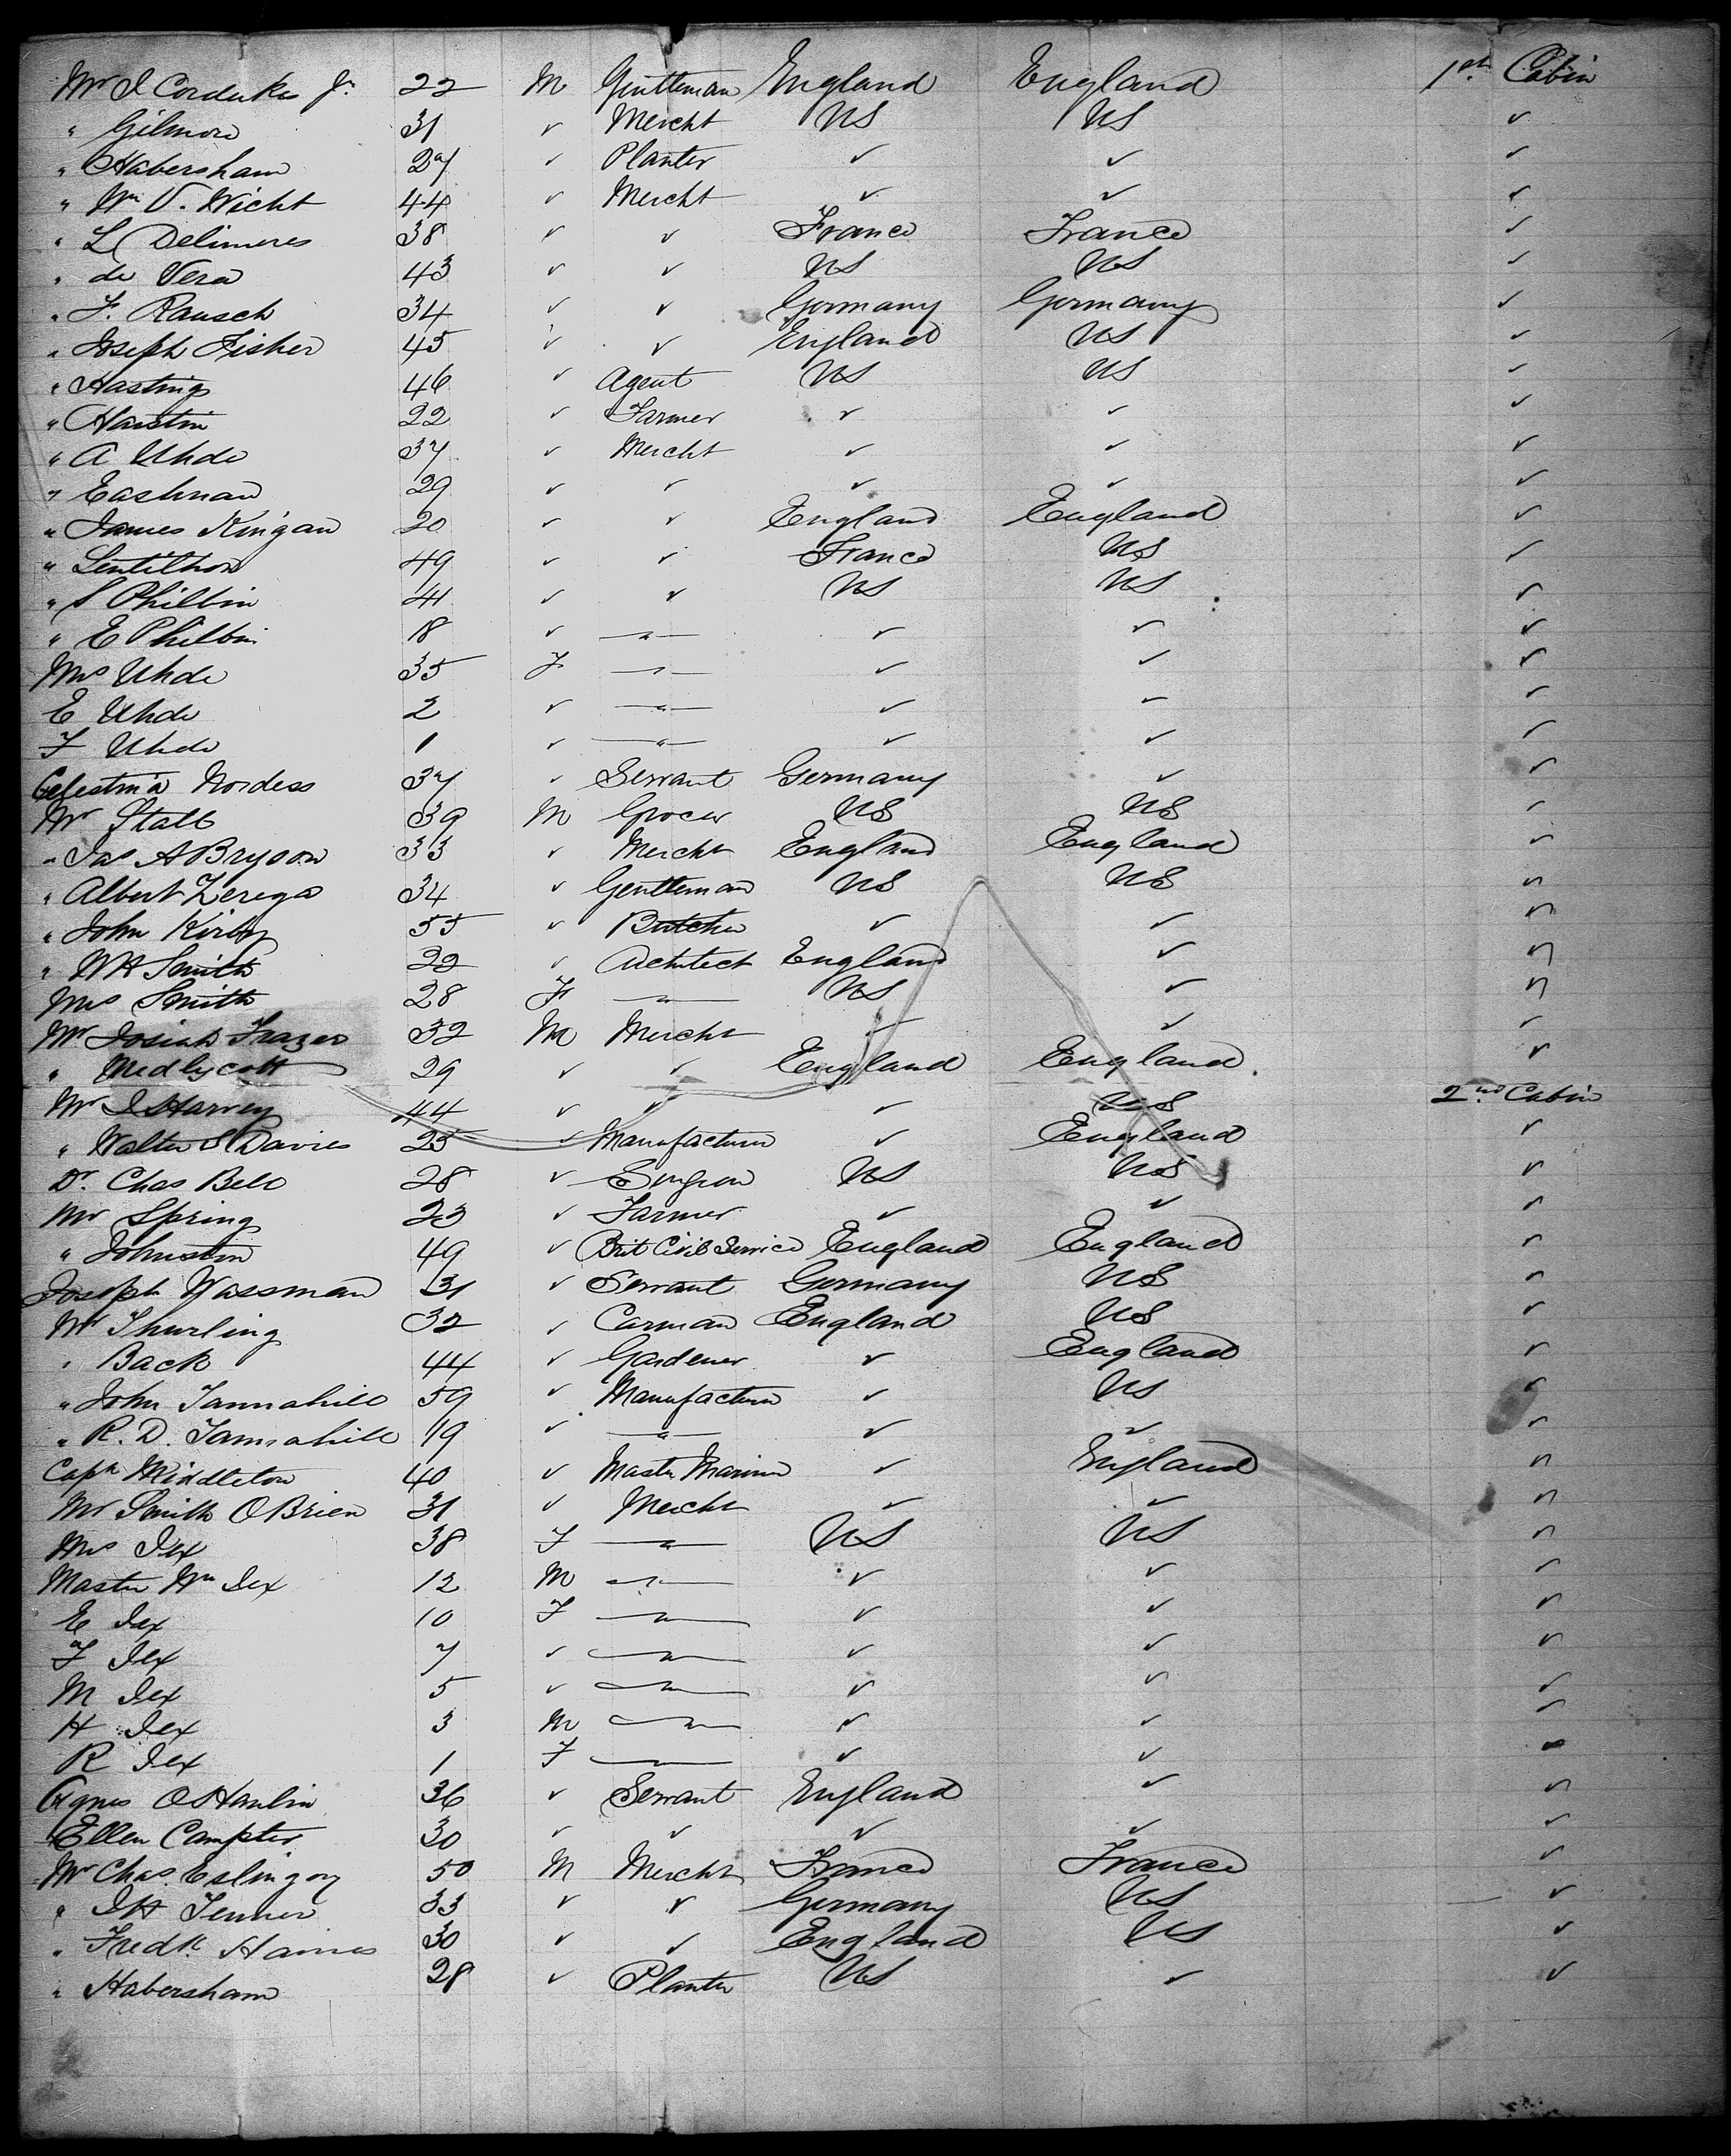 Mr I Cordukes Jr 22 M Gentleman England England 1st Cabin
" Gilmore 31 ✓ Mercht US US ✓
" Habersham 27 ✓ Planter ✓ ✓ ✓
" Wm V. Wicht 44 ✓ Mercht ✓ ✓ ✓
" L Delimeres 38 ✓ ✓ France France ✓
" de Vera 43 ✓ ✓ US US ✓
" F. Rausch 34 ✓ ✓ Germany Germany ✓
" Joseph Fisher 45 ✓ ✓ England US ✓
" Hastings 46 ✓ Agent US US ✓
" Haustin 22 ✓ Farmer ✓ ✓ ✓
" A Uhde 37 ✓ Mercht ✓ ✓ ✓
" Eastman 29 ✓ ✓ ✓ ✓ ✓
" James Kingan 20 ✓ ✓ England England ✓
" Lentilhon 49 ✓ ✓ France US ✓
" S Philbin 41 ✓ ✓ US US ✓
" E Philbin 18 ✓ —"— ✓ ✓ ✓
Mrs Uhde 35 F —"— ✓ ✓ ✓
E Uhde 2 ✓ —"— ✓ ✓ ✓
F Uhde 1 ✓ —"— ✓ ✓ ✓
Celestina Nordess 37 ✓ Servant Germany ✓ ✓
Mr Stall 39 M Grocer US US ✓
" Jas A Bryson 33 ✓ Mercht England England ✓
" Albert Zerega 34 ✓ Gentleman US US ✓
" John Kirby 55 ✓ Butcher ✓ ✓ ✓
" W H Smith 32 ✓ Architect England ✓ ✓
Mrs Smith 28 F —"— US ✓ ✓
Mr Josiah Frazer 32 M Mercht ✓ ✓ ✓
" Medlycott 29 ✓ ✓ England England ✓
Mr I Harvey 44 ✓ ✓ ✓ US 2nd Cabin
" Walter S Davies 25 ✓ Manufacturer ✓ England ✓
Dr. Chas Bell 28 ✓ Surgeon US US ✓
Mr Spring 23 ✓ Farmer ✓ ✓ ✓
" Johnston 49 ✓ Brit Civil Service England England ✓
Joseph Wassman 31 ✓ Servant Germany US ✓
Mr Thurling 32 ✓ Carman England US ✓
" Back 44 ✓ Gardener ✓ England ✓
" John Tannahill 59 ✓ Manufacturer ✓ US ✓
" R. D. Tannahill 19 ✓ —"— ✓ ✓ ✓
Capn Middleton 40 ✓ Master Mariner ✓ England ✓
Mr Smith OBrien 31 ✓ Mercht ✓ ✓ ✓
Mrs Iex 38 F —"— US US ✓
Master Wm Iex 12 M —"— ✓ ✓ ✓
E Iex 10 F —"— ✓ ✓ ✓
F Iex 7 ✓ —"— ✓ ✓ ✓
M Iex 5 ✓ —"— ✓ ✓ ✓
H Iex 3 M —"— ✓ ✓ ✓
R Iex 1 F —"— ✓ ✓ ✓
Agnes OHanlin 36 ✓ Servant England ✓ ✓
Ellen Campter 30 ✓ ✓ ✓ ✓ ✓
Mr Chas. Eslingory 50 M Mercht France France ✓
" I H Tenner 33 ✓ ✓ Germany US ✓
" Fredk Haines 30 ✓ ✓ England US ✓
" Habersham 28 ✓ Planter US ✓ ✓